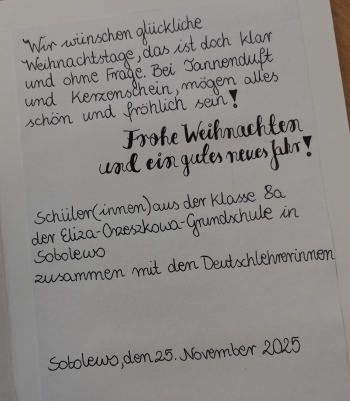 Wir wünschen glückliche
Weihnachtstage, das ist doch klar
und ohne Frage. Bei Tannenduft
und Kerzenschein, mögen alles
schön und fröhlich sein!
Frohe Weihnachten
und ein gutes neues Jahr!
Schüler(innen) aus der Klasse 8a
der Eliza-Orzeszkowa-Grundschule in
Sobolewo
zusammen mit den Deutschlehrerinnen
Sobolewo, den 25. November 2025